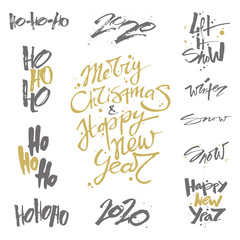 Ho-Ho-Ho
Ho
Ho
Ho
Ho
Ho
Ho
HoHoHo
2020
Merry
Christmas
&
Happy
New
Year
2020
Let
It
Snow
Winter
Snow
Snow
Happy
New
Year